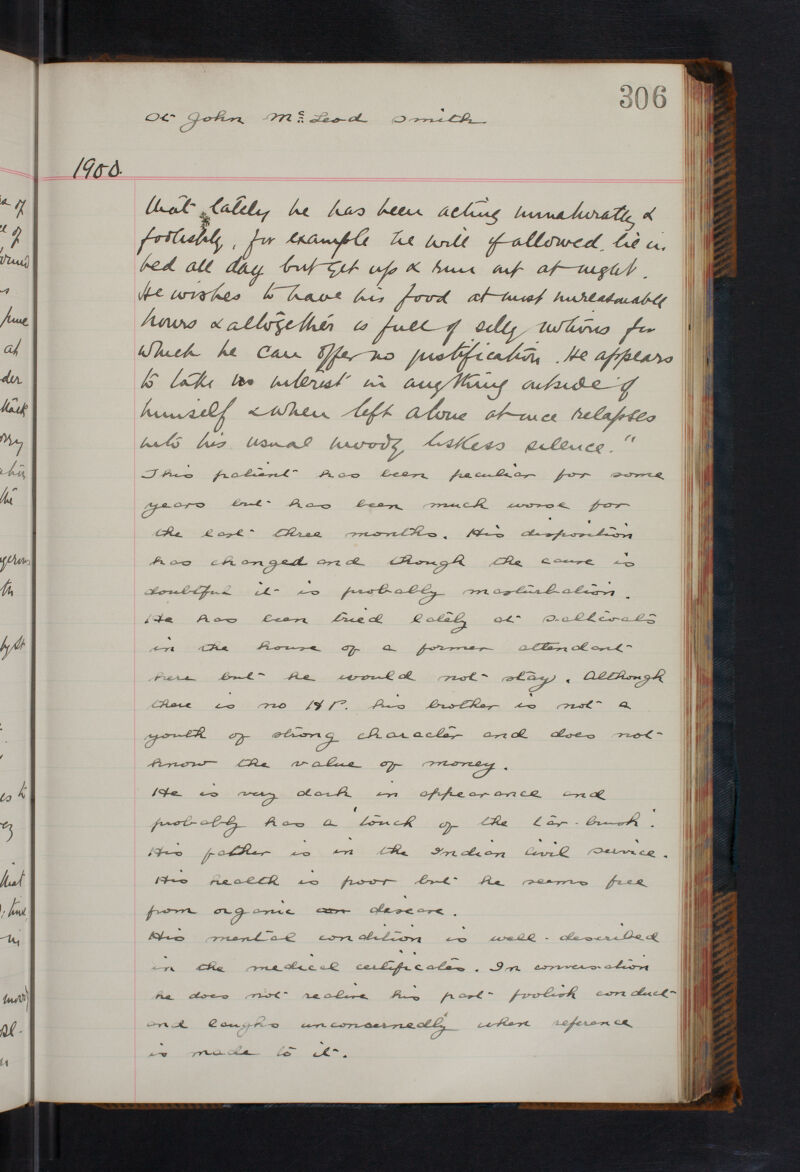 306
St John McLeod Smith
1900.
that lately he has been acting unnaturally &
foolishly, for example he will if allowed lie in
bed all day but get up & run out at night.
He wishes to have his food at most unreasonable
hours & altogether is full of silly notions for
which he can offer no justification. He appears
to take no interest in anything outside of
himself & when left alone at once relapses
into his usual moody listless silence."
This patient has been peculiar for some
years but has been much worse for
the last three months. His disposition
has changed and though the cause is
doubtful it is probably masturbation.
He has been tried lately at Saltcoats
in the house of a former attendant
here but he would not stay. Although
there is no H P. his brother is not a
youth of strong character and does not
know the value of money.
He is very dark in appearance and
probably has a 'touch of the tar-brush'.
His father is in the Indian Civil Service.
His health is poor but he seems free
from organic disease.
His mental condition is well-described
in the medical certificates. In conversation
he does not realise his past foolish conduct
and laughs unconcernedly when reference
is made to it.
of
of
June
at
der
the
by St
to
that
in